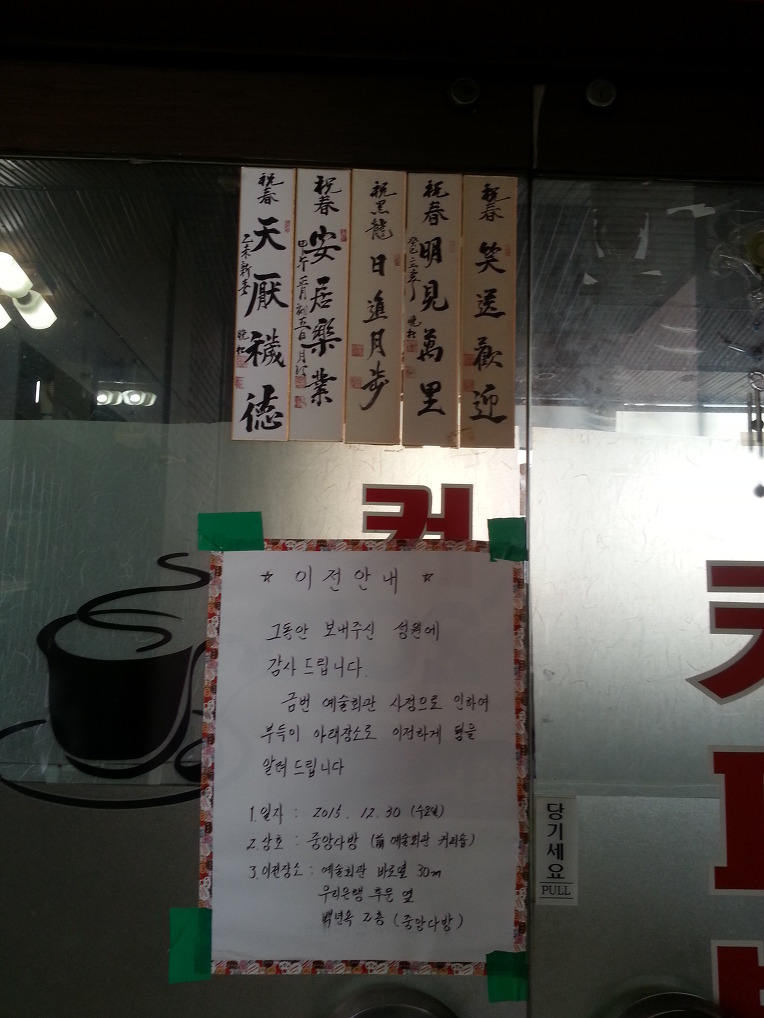 祝春 笑送歡迎
祝春 明見萬里
祝黑龍 日進月步
祝春 安居樂業
祝春 天厭穢德
乙未新春
커
☆ 이전안내 ☆
그동안 보내주신 성원에
감사드립니다.
금번 예술회관 사정으로 인하여
부득이 아래장소로 이전하게 됨을
알려드립니다
1. 일자 : 2015. 12. 30 (수요일)
2. 상호 : 중앙다방 (前 예술회관 커피숍)
3. 이전장소 : 예술회관 바로옆 30m
우리은행 후문 옆
백년옥 2층 (중앙다방)
당기세요
PULL